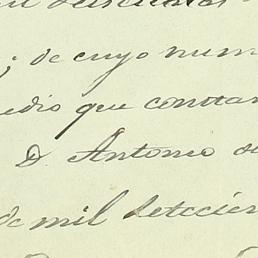 ; de cuyo num
edio que constan
D. Antonio de
de mil setecien